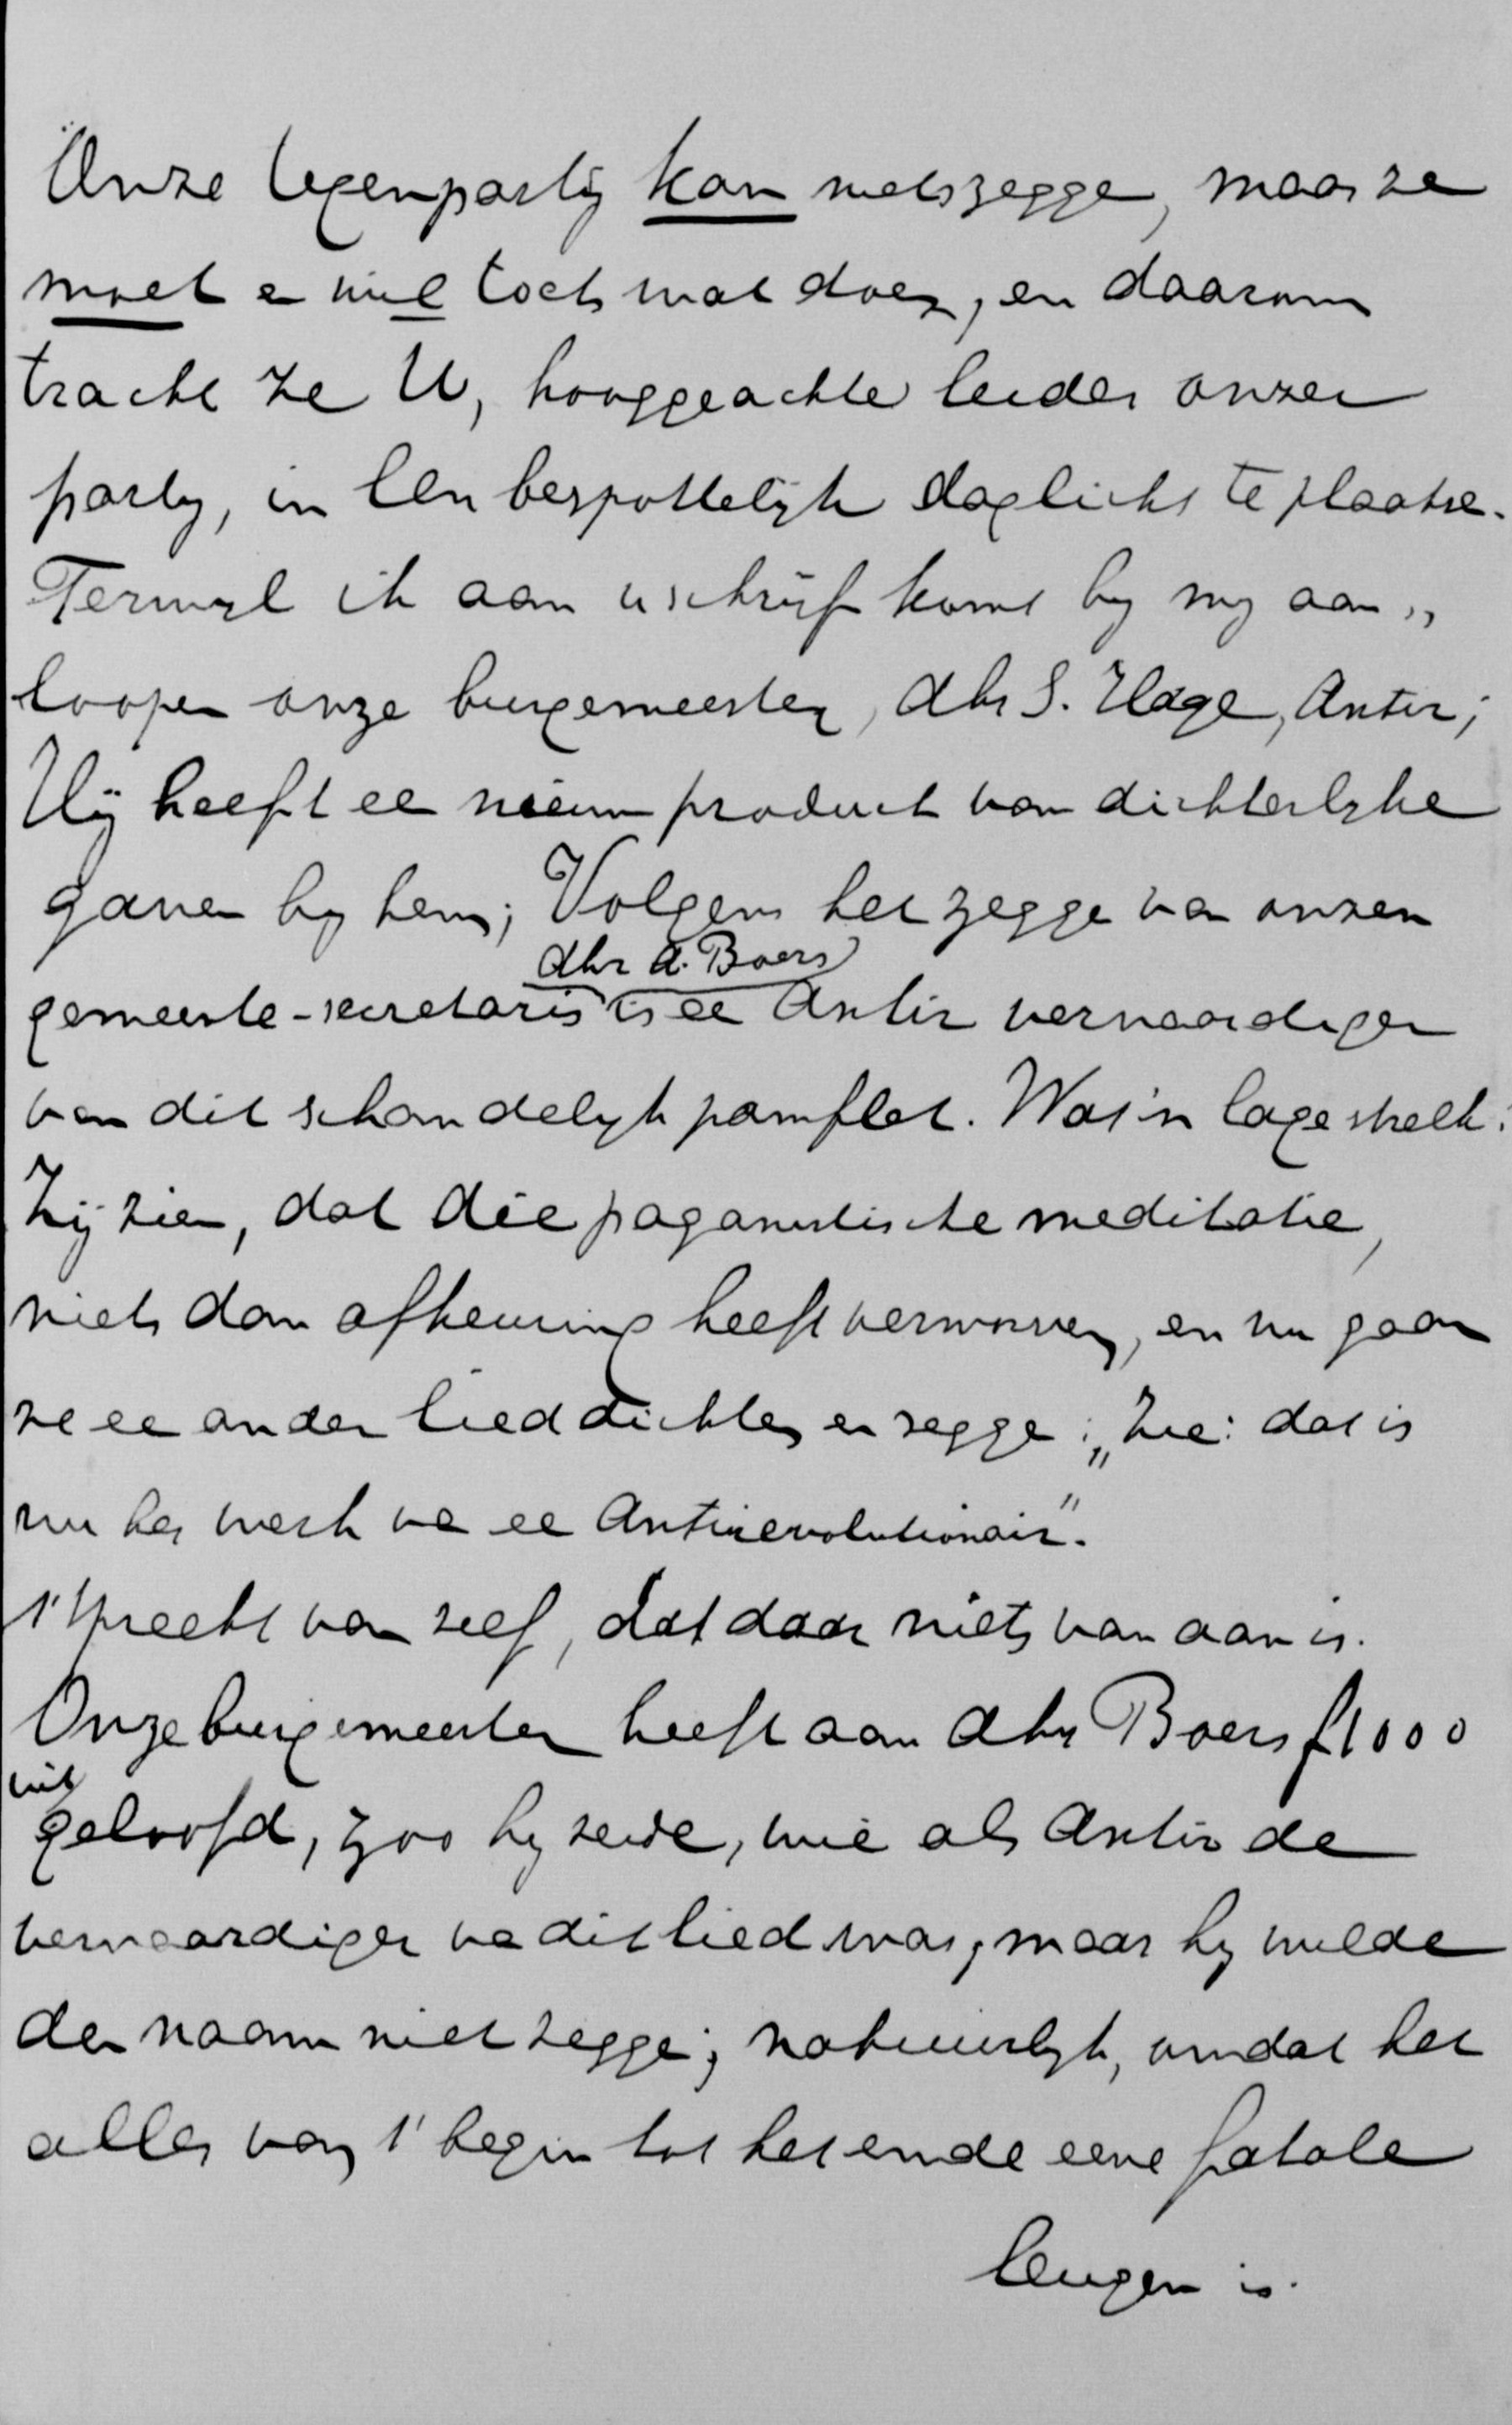 Onze tegenpartij kan niets zegge, maar ze
moet en wil toch wat doen, en daarom
tracht ze U, hooggeachte leider onzer
party, in een bespottelijk daglicht te plaatse.
Terwyl ik aan u schrijf komt by my aan„
loopen onze burgemeester, dhr S. Hage, Antir;
Hij heeft ee nieuw product van dichterlyke
gaven by hem; Volgens het zegge van onzen
dhr A. Boers
gemeente-secretaris is ee Antir vervaardiger
van dit schandelyk pamflet. Wat 'n lage streek!
Zij zien, dat die paganistische meditatie,
niets dan afkeuring heeft verworven, en nu gaan
ze ee ander lied dichten en zegge: „Zie: dat is
nu het werk va ee Antirevolutionair".
't Spreekt van zelf, dat daar niets van aan is.
Onze burgemeester heeft aan dhr Boers f1000
uit
geloofd, zoo hy zeide, wie als Antir de
vervaardiger va dit lied was, maar hy wilde
den naam niet zegge; natuurlyk, omdat het
alles van 't begin tot het einde eene fatale
leugen is.